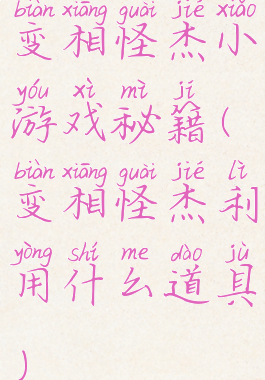 biàn xiāng guài jié xiǎo
变相怪杰小
yóu xì mì jí
游戏秘籍(
biàn xiāng guài jié lì
变相怪杰利
yòng shí me dào jù
用什么道具
)